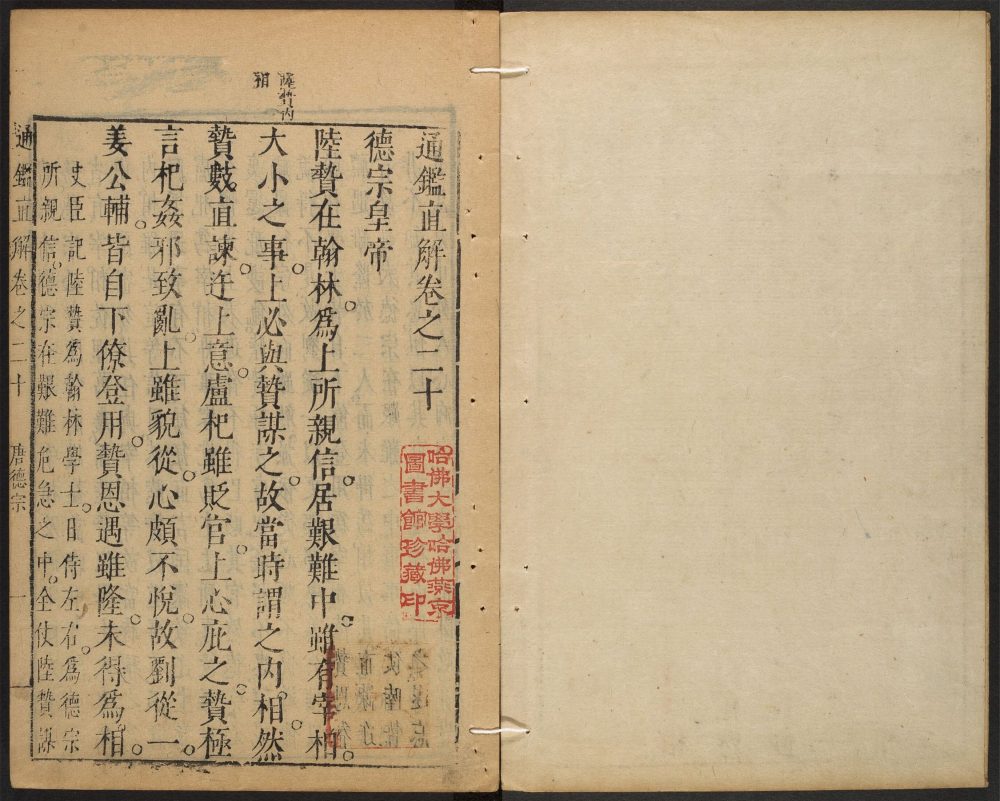 陸贄内
相
通鑑直解卷之二十
德宗皇帝
陸贄在翰林。爲上所親信。居艱難中。雖有宰相。
大小之事。上必與贄謀之。故當時謂之内相。然
贄數直諫。迕上意。盧杞雖貶官。上心庇之。贄極
言杞姦邪致亂。上雖貌從。心頗不悅。故劉從一
姜公輔。皆自下僚登用。贄恩遇雖隆。未得爲相。
史臣記陸贄爲翰林學士。日侍左右。爲德宗
所親信。德宗在艱難危急之中。全仗陸贄謀
通鑑直解卷之二十 唐德宗 一
哈佛大學哈佛燕京
圖書館珍藏印